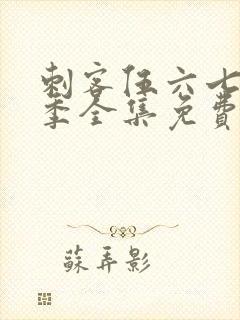 刺客伍六七
季全集免费
蘇弄影